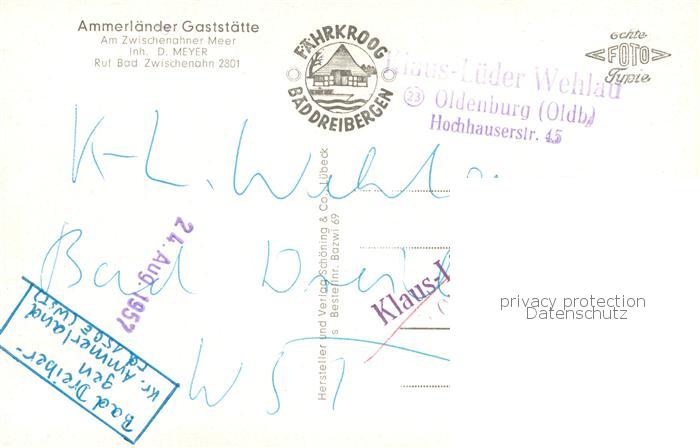 Ammerländer Gaststätte
Am Zwischenahner Meer
Inh. D. MEYER
Ruf Bad Zwischenahn 2801
FÄHRKROOG
BAD DREIBERGEN
echte
FOTO
Typie
Klaus-Lüder Wehlau
(23) Oldenburg (Oldb.)
Hochhauserstr. 45
K-L. Wehl
Bad Dreib
WST
24. Aug. 1957
Bad Dreiber-
gen
Kr. Ammerland
(WST)
Hersteller und Verlag Schöning & Co., Lübeck
Bestellnr. Bazwi 69
Klaus-
privacy protection
Datenschutz